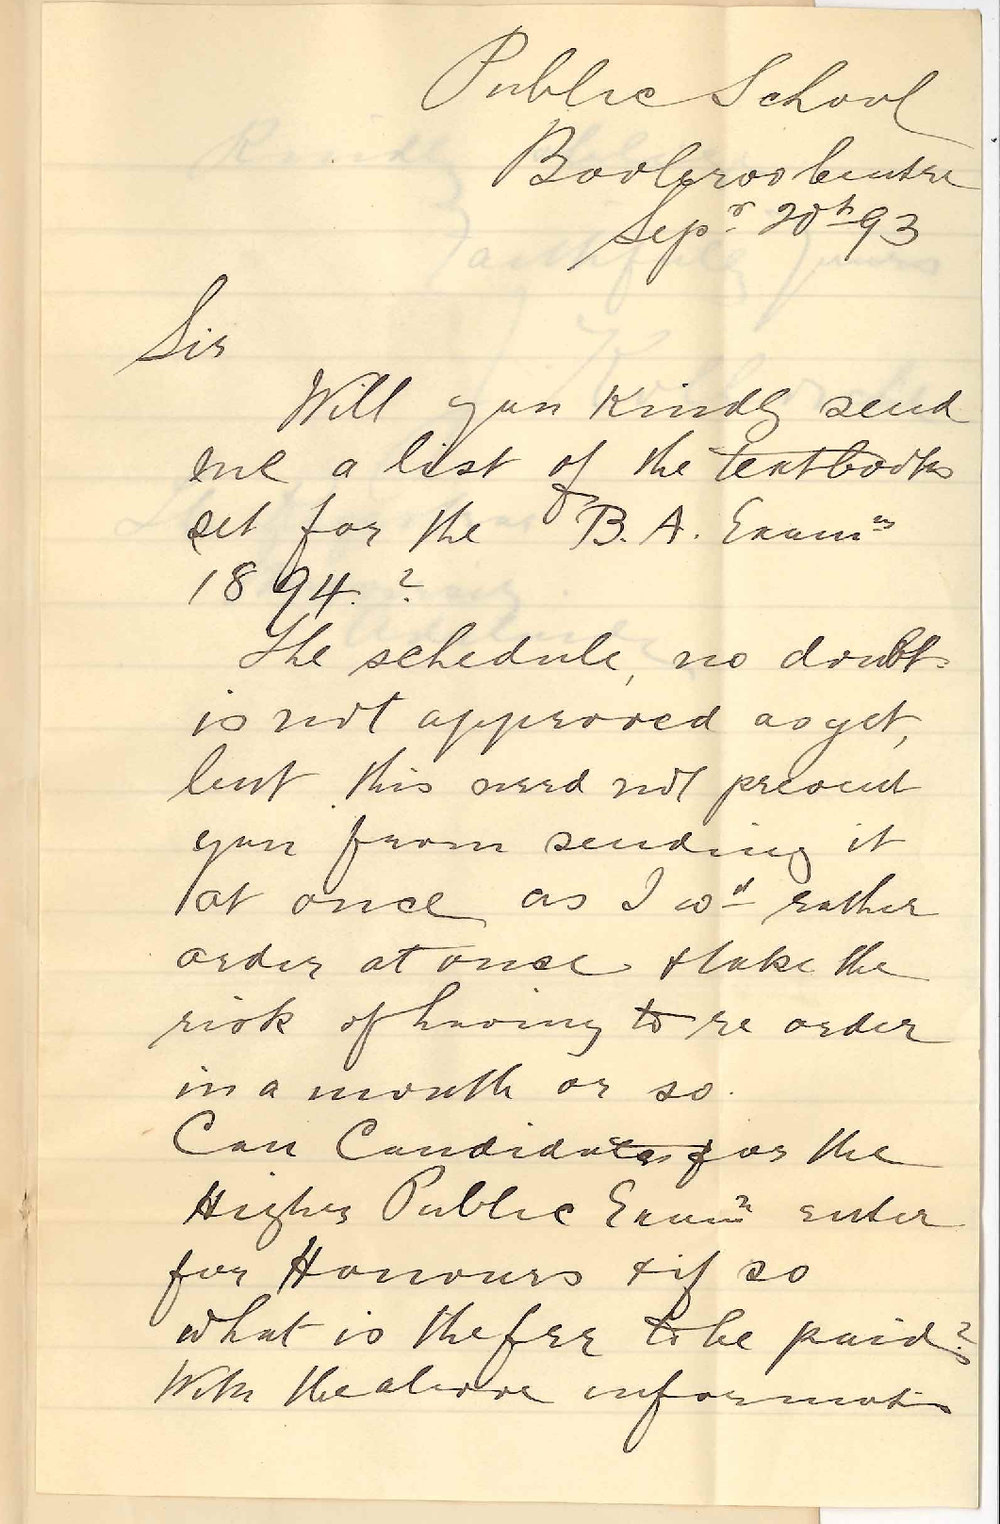 Public School
Booleroo Centre
Sepr 20th 93
Sir
Will you kindly send
me a list of the textbooks
set for the B. A. Examns
1894.?
The schedule, no doubt
is not approved as yet,
but this need not prevent
you from sending it
at once as I wd rather
order at once & take the
risk of having to re order
in a month or so.
Can Candidates for the
Higher Public Examn enter
for Honours & if so
what is the fee to be paid?
With the above informatn